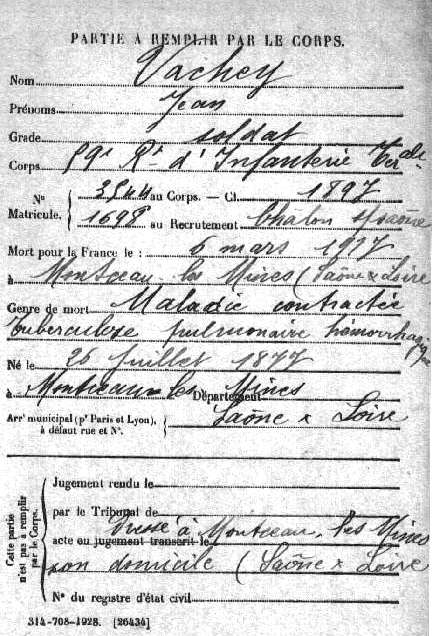 PARTIE A REMPLIR PAR LE CORPS.
Nom Vachey
Prénoms Jean
Grade soldat
Corps 59e Rt d'Infanterie Terale
Nº Matricule. 3544 au Corps. — Cl. 1897
1698 au Recrutement Chalon s/Saône
Mort pour la France le : 6 mars 1917
à Montceau-les Mines (Saône & Loire
Genre de mort Maladie contractée
tuberculose pulmonaire hémorrhagique
Né le 26 juillet 1877
à Montceau les Mines Département
Arrt municipal (pr Paris et Lyon), à défaut rue et Nº. Saône & Loire
Cette partie n'est pas à remplir par le Corps.
Jugement rendu le
par le Tribunal de
acte ou jugement transcrit le Dressé à Montceau-les Mines
son domicile (Saône & Loire
Nº du registre d'état civil
314-708-1928. [26434]